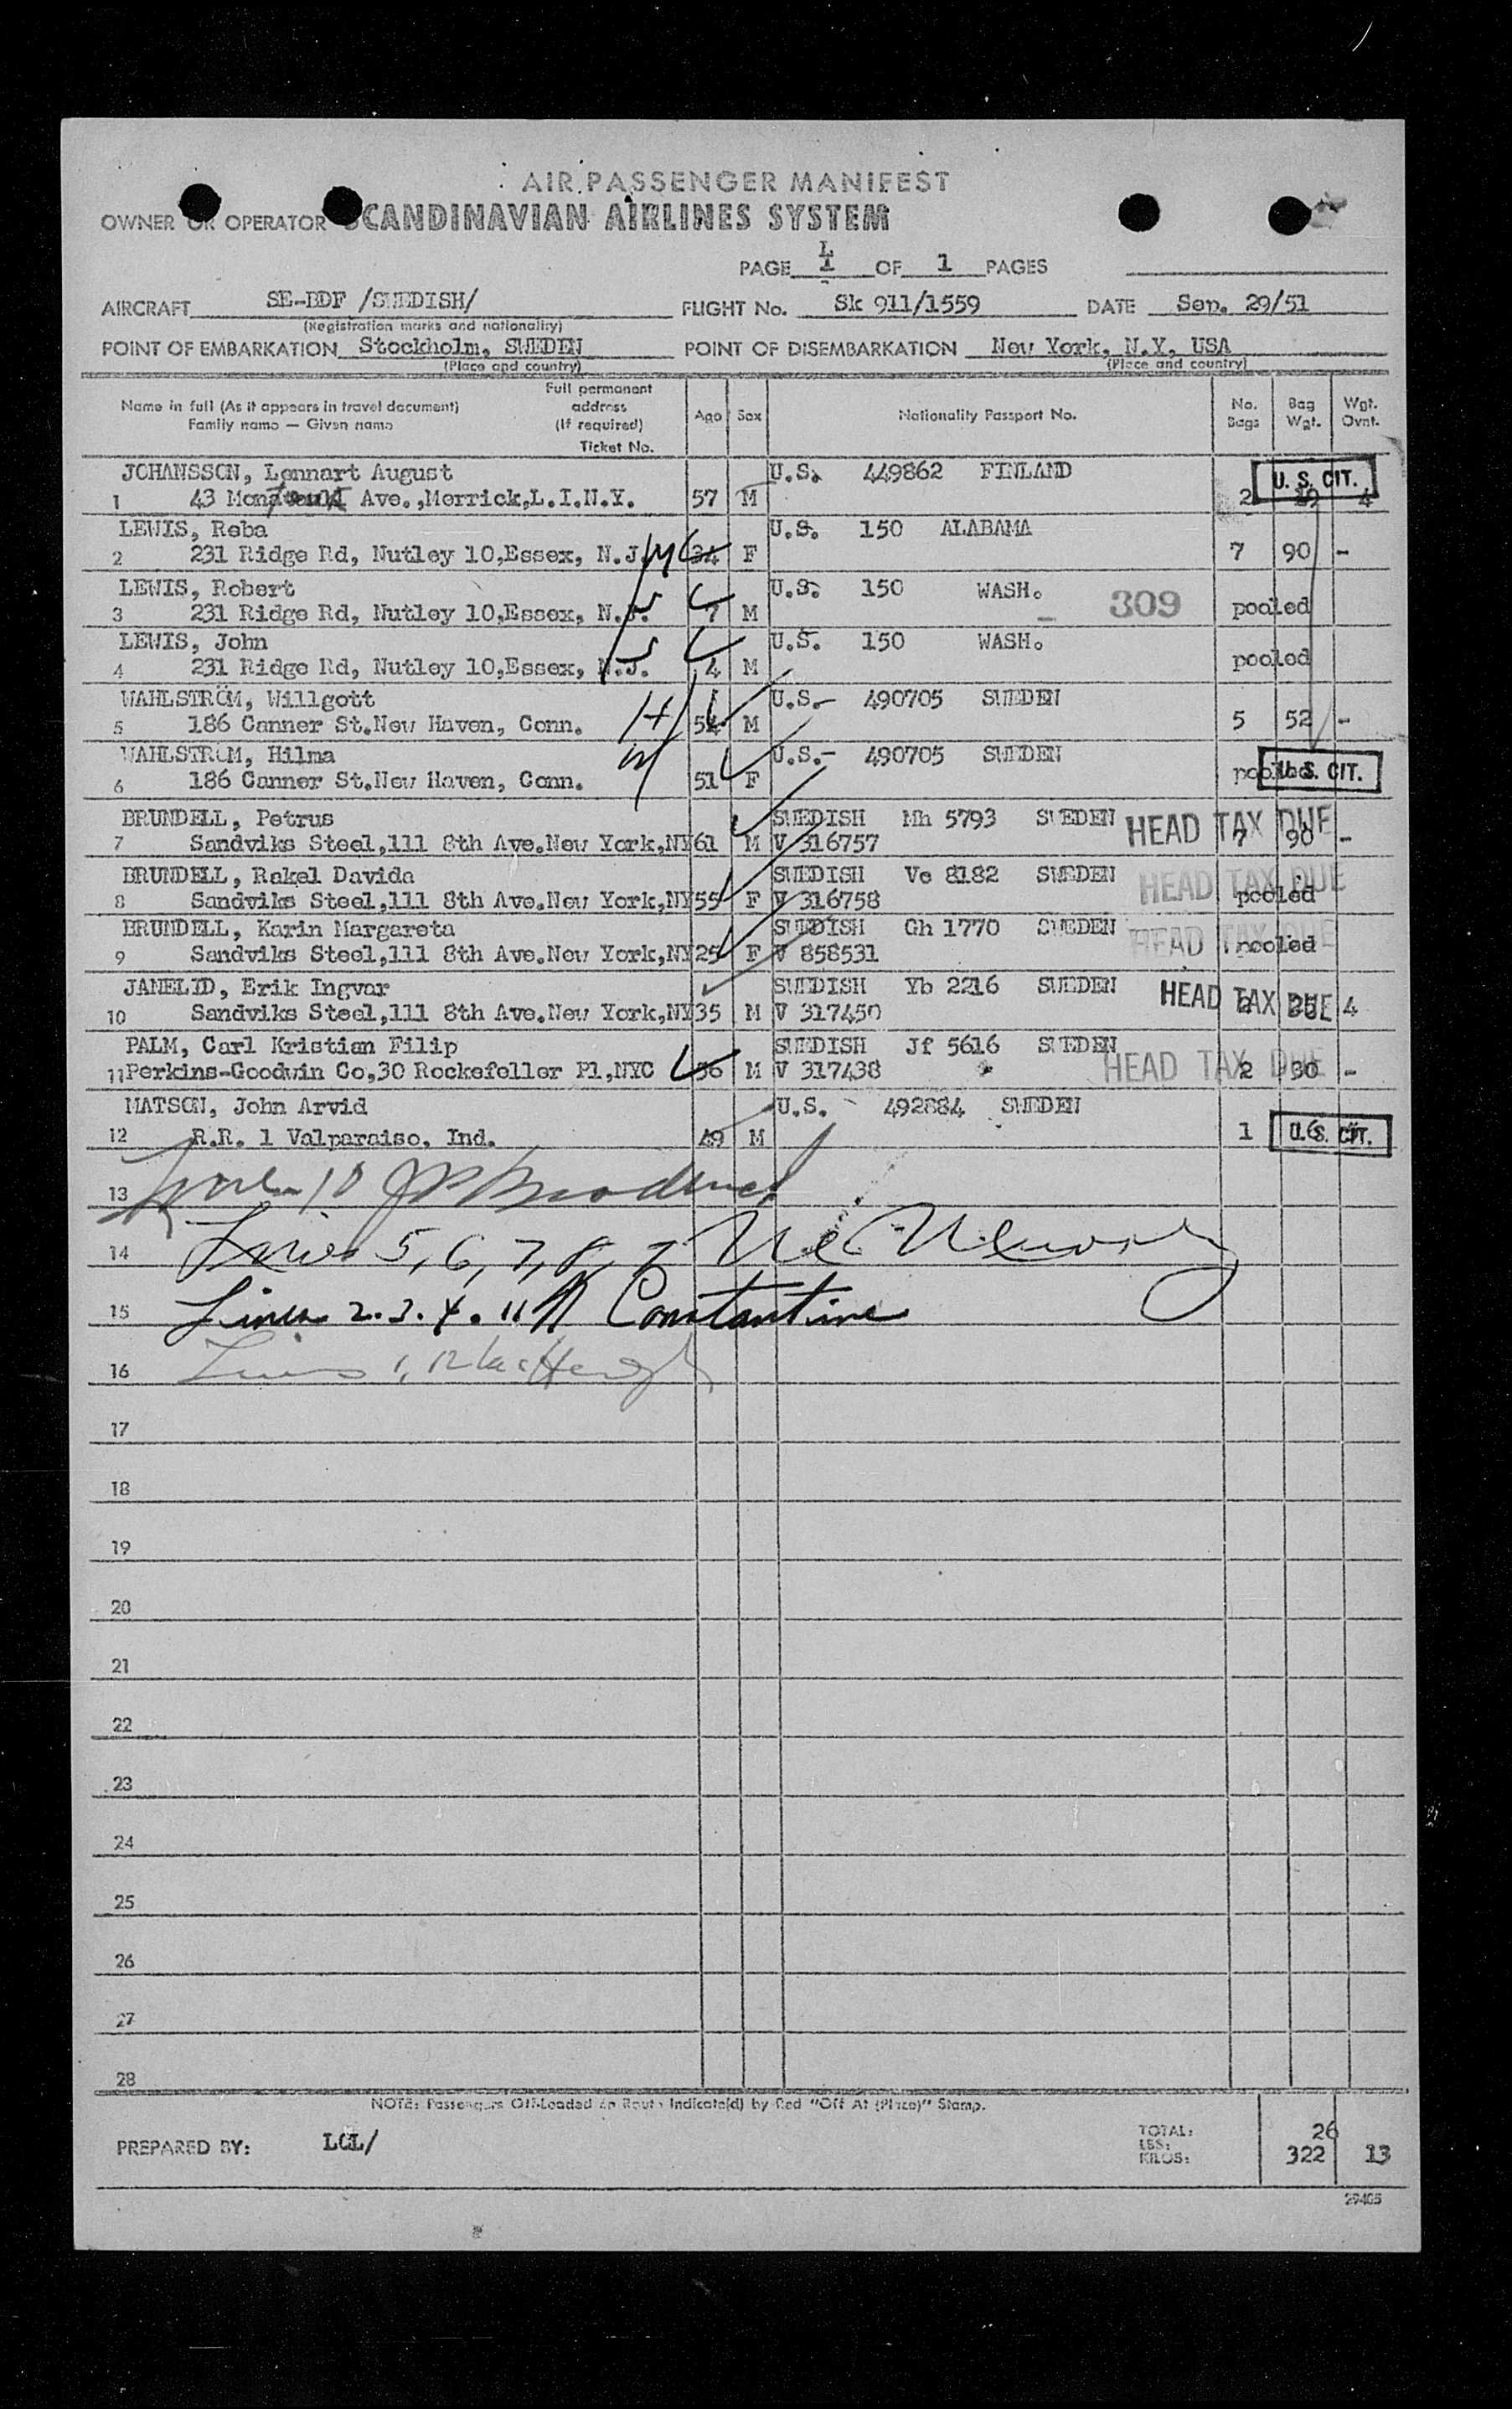 AIR PASSENGER MANIFEST
OWNER OR OPERATOR SCANDINAVIAN AIRLINES SYSTEM
PAGE 1 OF 1 PAGES
AIRCRAFT SE-BDF /SWEDISH/ FLIGHT No. Sk 911/1559 DATE Sep. 29/51
(Registration marks and nationality)
POINT OF EMBARKATION Stockholm, SWEDEN POINT OF DISEMBARKATION New York, N.Y, USA
(Place and country) (Place and country)
Name in full (As it appears in travel document) Family name — Given name Full permanent address (If required) Ticket No. Age Sex Nationality Passport No. No. Bags Bag Wgt. Wgt. Ovnt.
JOHANSSON, Lennart August U.S. 449862 FINLAND U. S. CIT.
1 43 Ave.,Merrick,L.I.N.Y. 57 M 2 4
LEWIS, Reba U.S. 150 ALABAMA
2 231 Ridge Rd, Nutley 10,Essex, N.J. M 34 F 7 90 -
LEWIS, Robert U.S. 150 WASH. 309
3 231 Ridge Rd, Nutley 10,Essex, N.J. 7 M pooled
LEWIS, John U.S. 150 WASH.
4 231 Ridge Rd, Nutley 10,Essex, N.J. 4 M pooled
WAHLSTRÖM, Willgott U.S.- 490705 SWEDEN
5 186 Canner St.New Haven, Conn. H 54 M 5 52 -
WAHLSTROM, Hilma U.S.- 490705 SWEDEN
6 186 Canner St.New Haven, Conn. W 51 F pooled U. S. CIT.
BRUNDELL, Petrus SWEDISH Mh 5793 SWEDEN HEAD TAX DUE
7 Sandviks Steel,111 8th Ave.New York,NY 61 M V 316757 7 90 -
BRUNDELL, Rakel Davida SWEDISH Ve 8182 SWEDEN HEAD TAX DUE
8 Sandviks Steel,111 8th Ave.New York,NY 55 F V 316758 pooled
BRUNDELL, Karin Margareta SWEDISH Gh 1770 SWEDEN HEAD TAX DUE
9 Sandviks Steel,111 8th Ave.New York,NY 25 F V 858531 pooled
JANELID, Erik Ingvar SWEDISH Yb 2216 SWEDEN HEAD TAX DUE
10 Sandviks Steel,111 8th Ave.New York,NY 35 M V 317450 2 4
PALM, Carl Kristian Filip SWEDISH Jf 5616 SWEDEN HEAD TAX DUE
11 Perkins-Goodwin Co,30 Rockefeller Pl,NYC 36 M V 317438 2 30 -
MATSON, John Arvid U.S. 492884 SWEDEN
12 R.R. 1 Valparaiso, Ind. 49 M 1 U.S. CIT.
13 10
14 Lines 5, 6, 7, 8,
15 Lines 2. 3. 4. 11 Constantine
16 Lines 1, 12
17
18
19
20
21
22
23
24
25
26
27
28
NOTE: Passengers Off-Loaded En Route Indicate(d) by Red "Off At (Place)" Stamp.
PREPARED BY: LGL/ TOTAL: 26
LBS:
KILOS: 322 13
29405